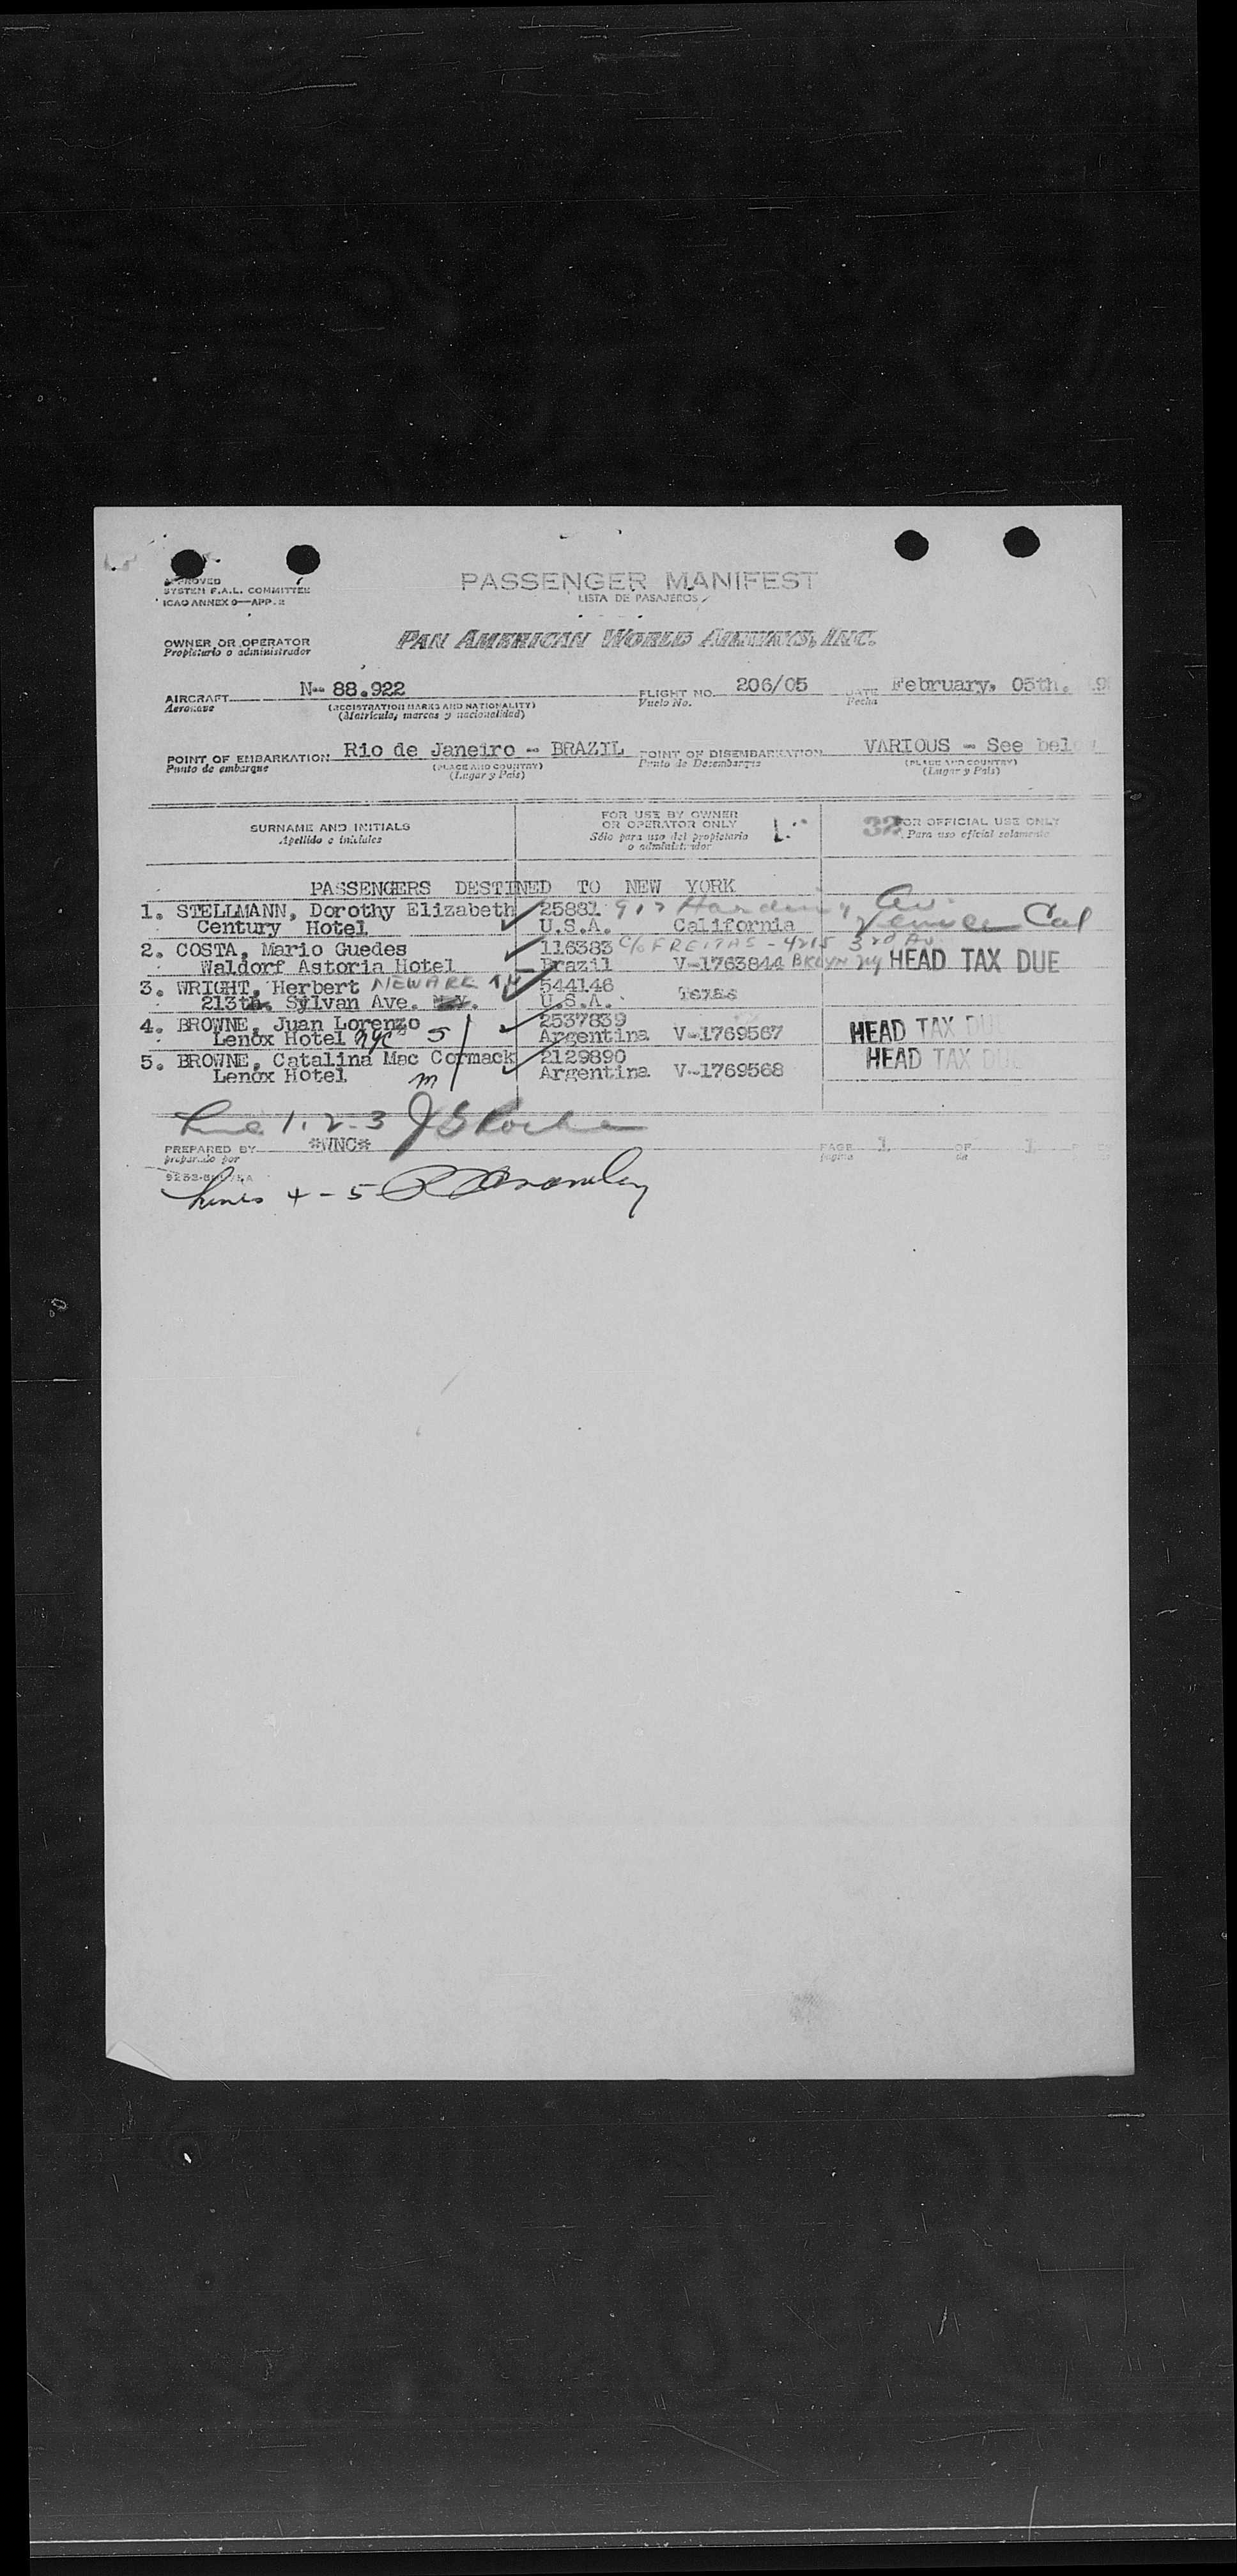 APPROVED
SYSTEM F.A.L. COMMITTEE
ICAO ANNEX 9—APP. 2
PASSENGER MANIFEST
LISTA DE PASAJEROS
OWNER OR OPERATOR
Propietario o administrador
PAN AMERICAN WORLD AIRWAYS, INC.
AIRCRAFT N-- 88.922 FLIGHT NO. 206/05 DATE February. 05th.
Aeronave (REGISTRATION MARKS AND NATIONALITY) Vuelo No. Fecha
(Matrícula, marcas y nacionalidad)
POINT OF EMBARKATION Rio de Janeiro - BRAZIL POINT OF DISEMBARKATION VARIOUS - See below
Punto de embarque (PLACE AND COUNTRY) Punto de Desembarque (PLACE AND COUNTRY)
(Lugar y País) (Lugar y País)
SURNAME AND INITIALS FOR USE BY OWNER OR OPERATOR ONLY 32 FOR OFFICIAL USE ONLY
Apellido e iniciales Sólo para uso del propietario o administrador Para uso oficial solamente
PASSENGERS DESTINED TO NEW YORK
1. STELLMANN, Dorothy Elizabeth 25881 Av.
Century Hotel U.S.A. California Venice Cal
2. COSTA, Mario Guedes 116383 C/o FREITAS - 4215 3rd Av.
Waldorf Astoria Hotel Brazil V-1763844 BKLYN NY HEAD TAX DUE
3. WRIGHT, Herbert NEWARK NJ 544146
213th. Sylvan Ave. U.S.A. Texas
4. BROWNE, Juan Lorenzo 2537839
Lenox Hotel NYC 5 Argentina V-1769567 HEAD TAX DUE
5. BROWNE, Catalina Mac Cormack 2129890 HEAD TAX DUE
Lenox Hotel m Argentina V-1769568
Line 1.2-3
PREPARED BY *WNC* PAGE 1 OF 1
preparado por página de
Lines 4-5